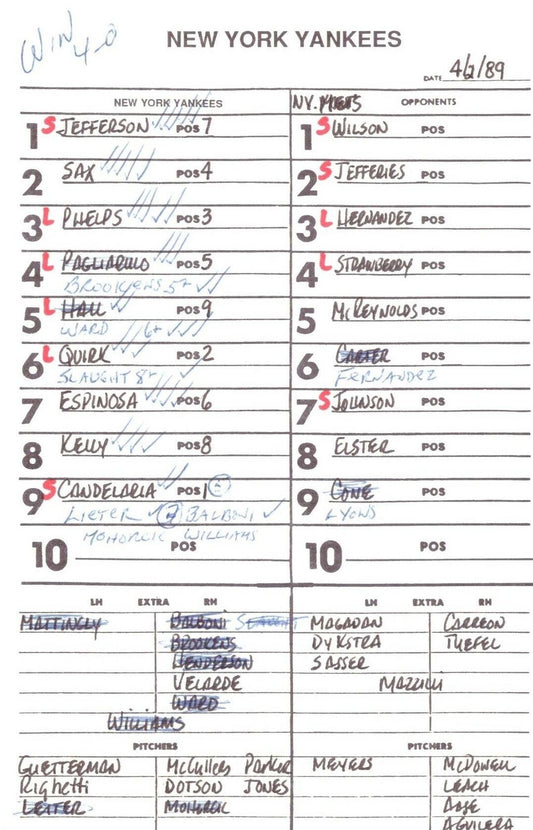 WIN
4-0
NEW YORK YANKEES
DATE 4/2/89
NEW YORK YANKEES
1 S JEFFERSON POS 7
2 SAX POS 4
3 L PHELPS POS 3
4 L PAGLIARULO POS 5
BROOKENS 5
5 L HALL POS 9
WARD 6
6 L QUIRK POS 2
SLAUGHT 8
7 ESPINOSA POS 6
8 KELLY POS 8
9 S CANDELARIA POS 1
LIETER 7 BALBONI
MOHORCIC WILLIAMS
10 POS
N.Y. METS OPPONENTS
1 S WILSON POS
2 S JEFFERIES POS
3 L HERNANDEZ POS
4 L STRAWBERRY POS
5 McREYNOLDS POS
6 CARTER POS
FERNANDEZ
7 S JOHNSON POS
8 ELSTER POS
9 CONE POS
LYONS
10 POS
LH EXTRA RH
MATTINGLY BALBONI SLAUGHT
BROOKENS
HENDERSON
VELARDE
WARD
WILLIAMS
PITCHERS
GUETTERMAN McCULLERS PARKER
Righetti DOTSON JONES
LEITER MOHORCIC
LH EXTRA RH
MAGADAN CARREON
DYKSTRA TUEFEL
SASSER
MAZZILLI
PITCHERS
MEYERS McDOWELL
LEACH
AASE
AGUILERA